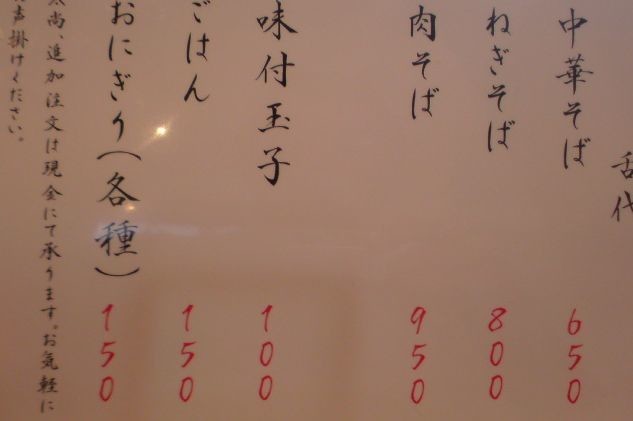 舌代
中華そば 650
ねぎそば 800
肉そば 950
味付玉子 100
ごはん 150
おにぎり(各種) 150
尚、追加注文は現金にて承ります。お気軽に
声掛けください。